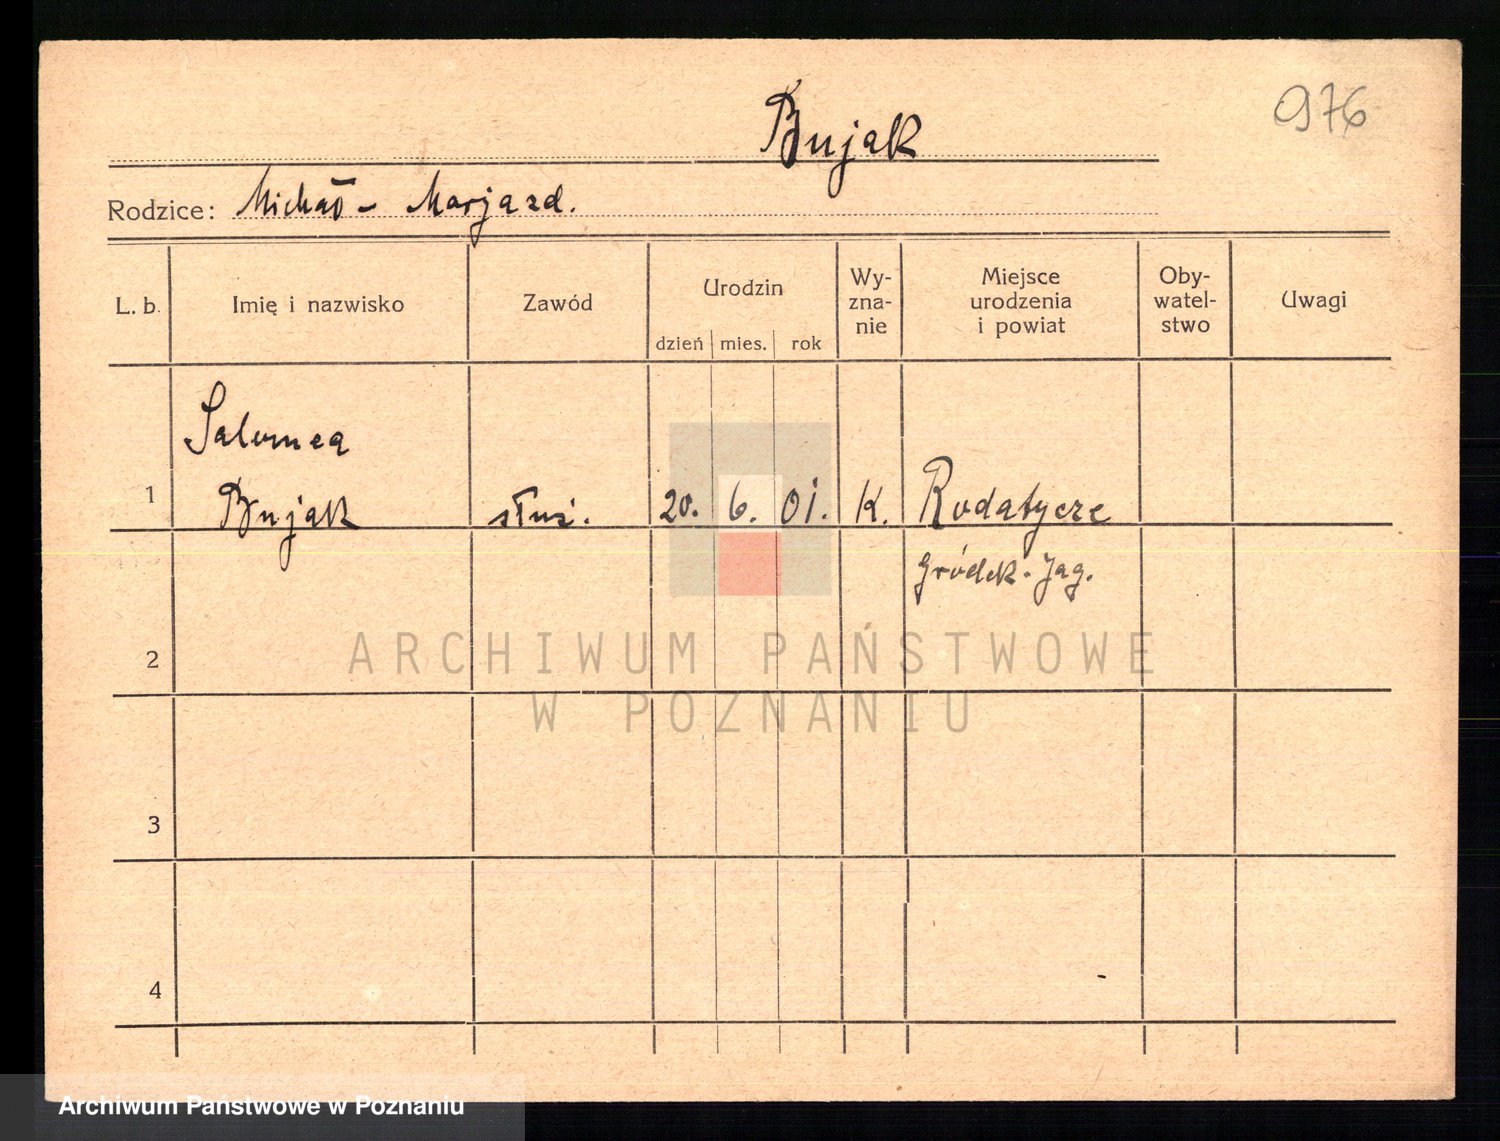 976
Bujak
Rodzice: Michał - Marja zd.
L. b. Imię i nazwisko Zawód Urodzin dzień mies. rok Wy-zna-nie Miejsce urodzenia i powiat Oby-watel-stwo Uwagi
Salomea
1 Bujak służ. 20. 6. 01. K. Rodatycze
Gródek-Jag.
2
ARCHIWUM PAŃSTWOWE
W POZNANIU
3
4
Archiwum Państwowe w Poznaniu